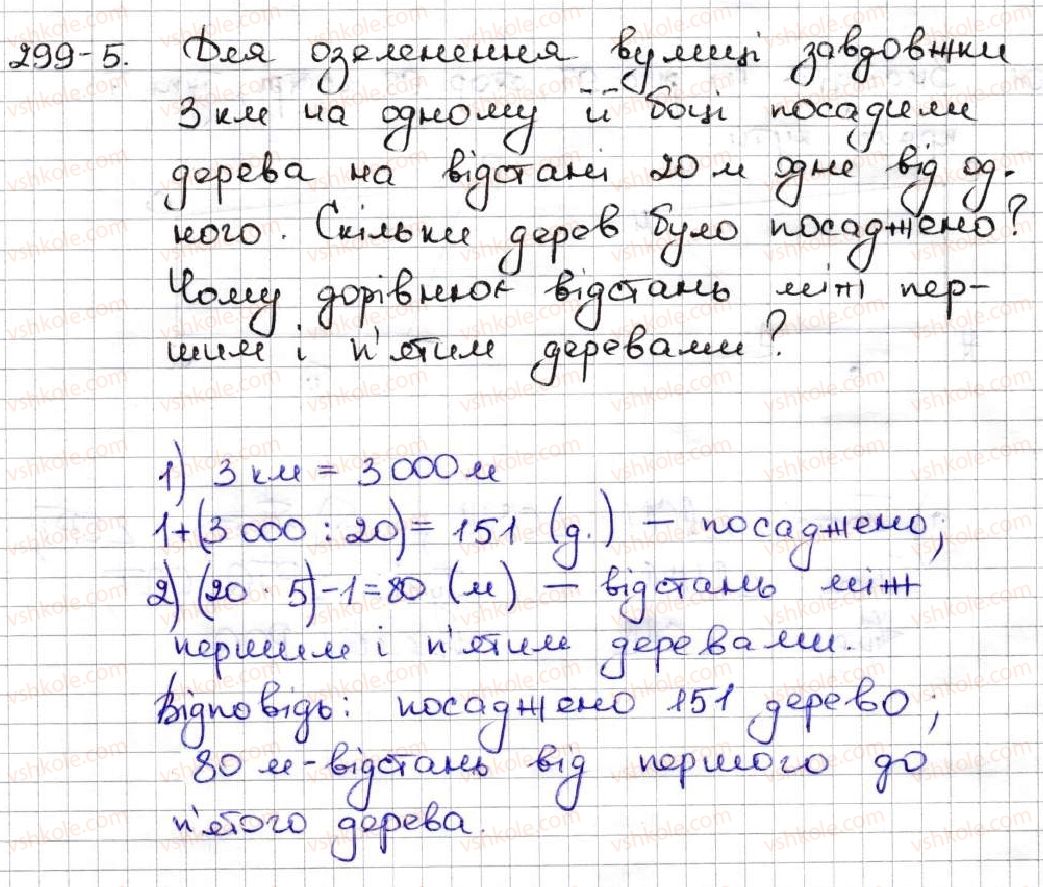 299-5. Для озеленення вулиці завдовжки
3 км на одному її боці посадили
дерева на відстані 20 м одне від од-
ного. Скільки дерев було посаджено?
Чому дорівнює відстань між пер-
шим і п'ятим деревами?
1) 3 км = 3 000 м
1+(3 000 : 20)= 151 (д.) – посаджено;
2) (20 · 5)-1=80 (м) – відстань між
першим і п'ятим деревами.
Відповідь: посаджено 151 дерево;
80 м - відстань від першого до
п'ятого дерева.